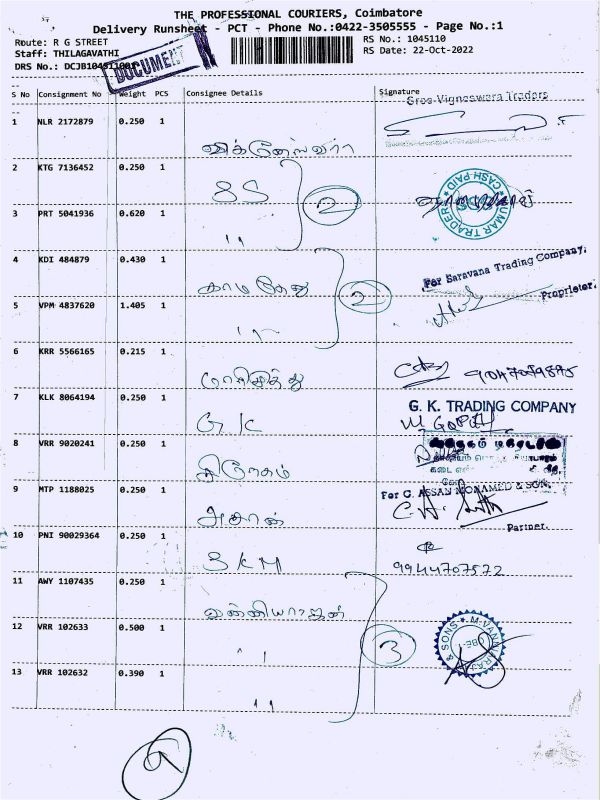 THE PROFESSIONAL COURIERS, Coimbatore
Delivery Runsheet - PCT - Phone No.:0422-3505555 - Page No.:1
Route: R G STREET
RS No.: 1045110
Staff: THILAGAVATHI
RS Date: 22-Oct-2022
DRS No.: DCJB1045110
DOCUMENT
S No Consignment No Weight PCS Consignee Details Signature
Sree Vigneswara Traders
1 NLR 2172879 0.250 1
2 KTG 7136452 0.250 1 SS
CASH PAID
KUMAR TRADERS
2
3 PRT 5041936 0.620 1 "
4 KDI 484879 0.430 1 காமதேனு
For Saravana Trading Company,
2
Proprietor.
5 VPM 4837620 1.405 1 "
6 KRR 5566165 0.215 1 மாரிமுத்து
7 KLK 8064194 0.250 1 G.K
G. K. TRADING COMPANY
M GOPAL
8 VRR 9020241 0.250 1
9 MTP 1188025 0.250 1 அசான்
For G. ASSAN MOHAMED & SON,
Partner.
10 PNI 90029364 0.250 1 SKM
9944707572
11 AWY 1107435 0.250 1 வன்னியராஜன்
12 VRR 102633 0.500 1 "
3
& SONS
13 VRR 102632 0.390 1 "
9